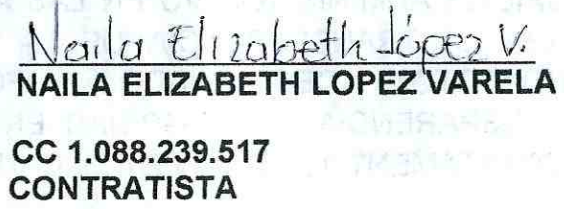 Naila Elizabeth López V.
NAILA ELIZABETH LOPEZ VARELA
CC 1.088.239.517
CONTRATISTA